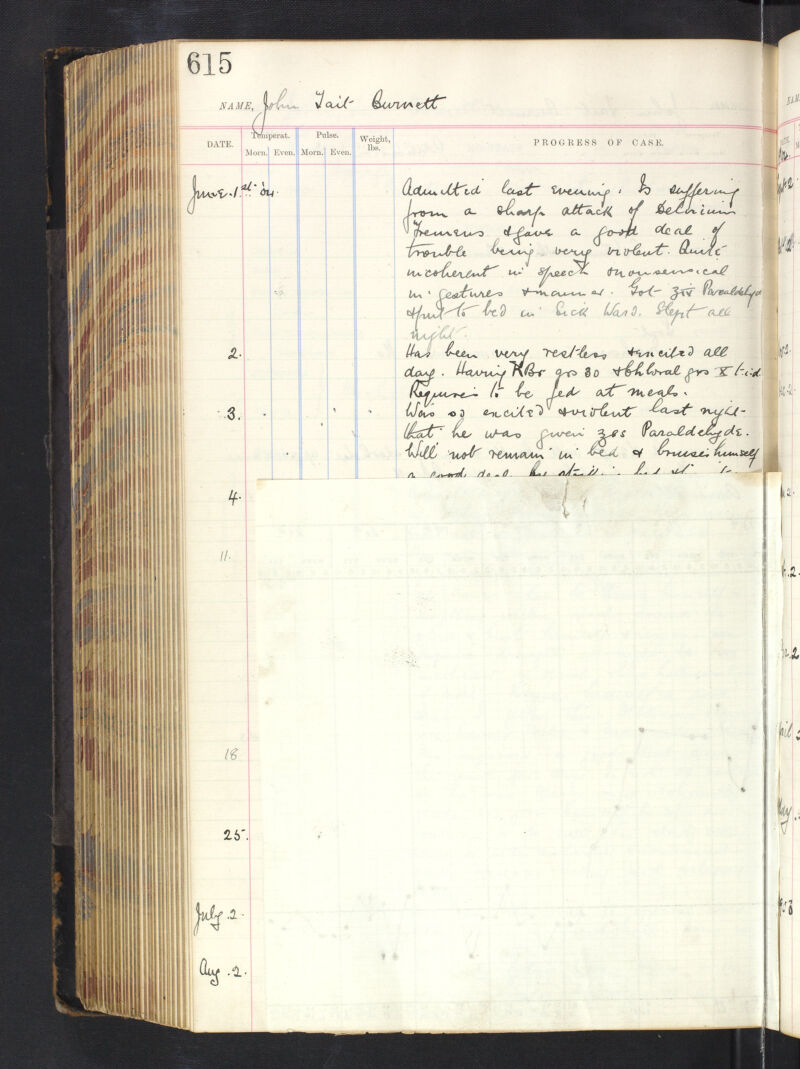 615
NAME, John Tait Burnett
DATE. Temperat. Pulse. Weight, lbs. PROGRESS OF CASE.
Morn. Even. Morn. Even.
June 1st '04. Admitted last evening. Is suffering
from a sharp attack of Delirium
Tremens & gave a good deal of
trouble being very violent. Quite
incoherent in speech & nonsensical
in gestures & manner. Got Paraldehyde
& put to bed in Sick Ward. Slept all
night.
2. Has been very restless & excited all
day. Having KBr grs 30 & Chloral grs X t.i.d
Requires to be fed at meals.
3. Was so excited & violent last night
that he was given Paraldehyde.
Will not remain in bed & bruises himself
a good deal by
4.
11.
18
25.
July 2.
Aug. 2.